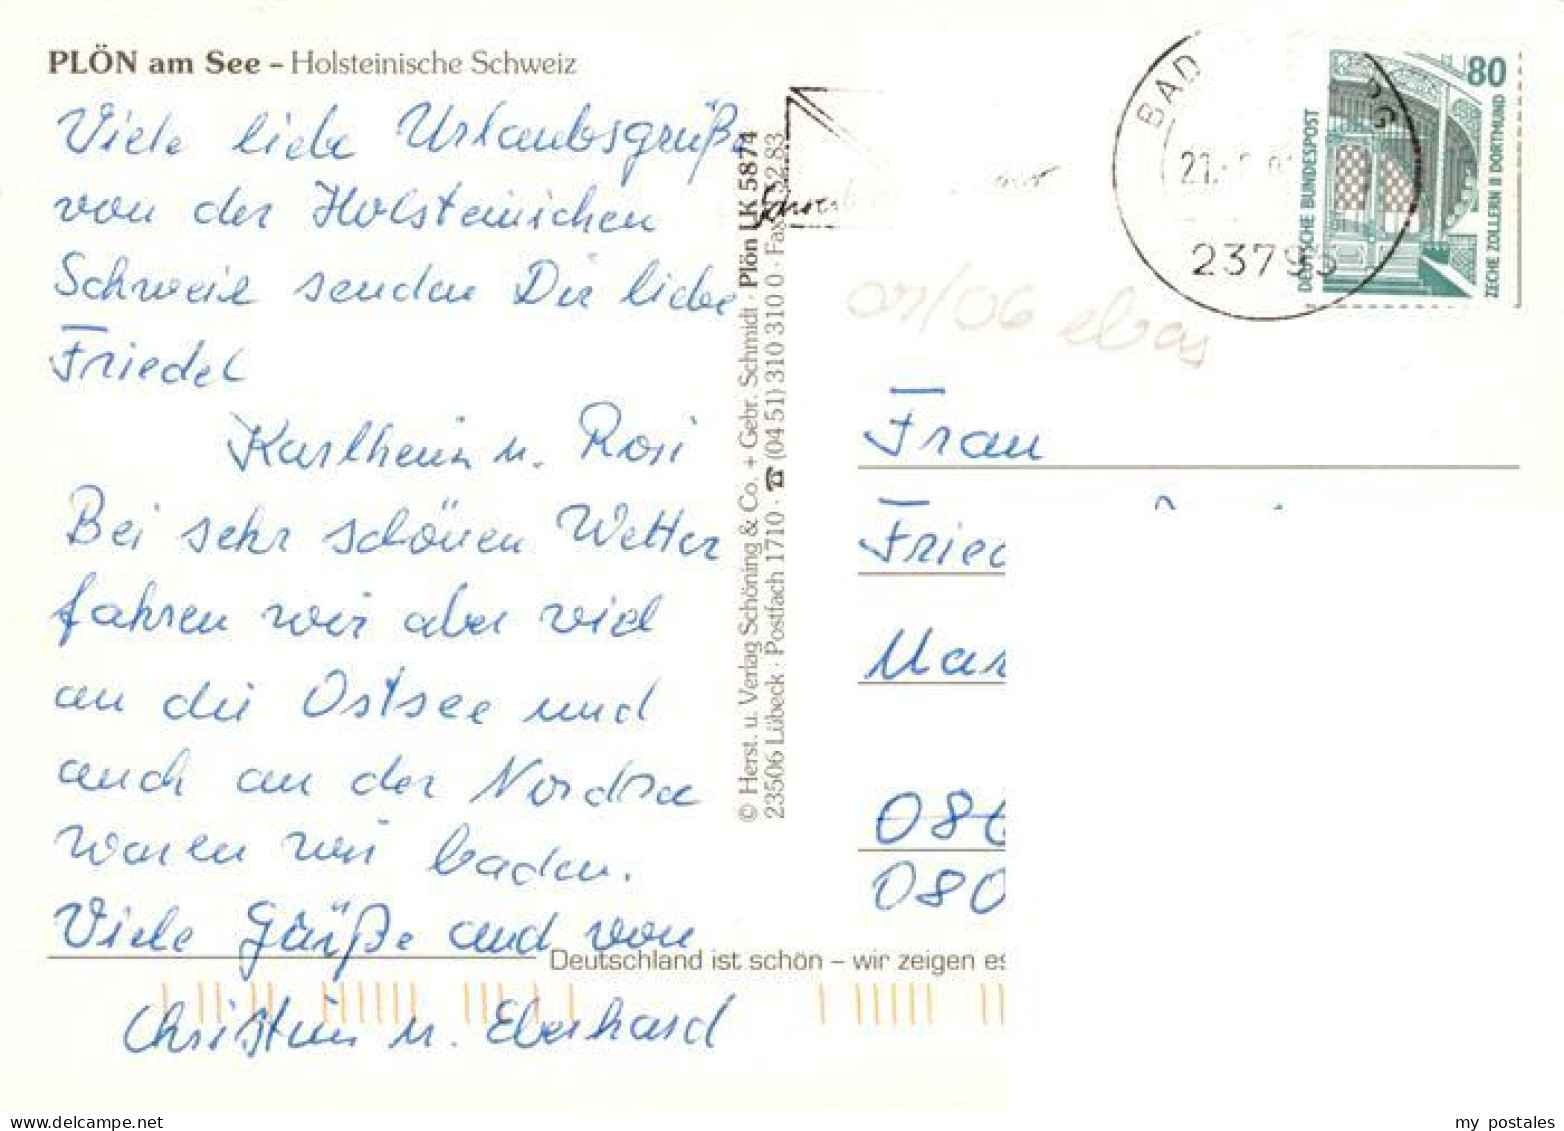 PLÖN am See – Holsteinische Schweiz
Viele liebe Urlaubsgrüße
von der Holsteinichen
Schweiz senden Dir liebe
Friedel
Karlheinz u. Rosi
Bei sehr schönen Wetter
fahren wir aber viel
an die Ostsee und
auch an der Nordsee
waren wir baden.
Viele Grüße auch von
Christine u. Eberhard
© Herst. u. Verlag Schöning & Co. + Gebr. Schmidt · Plön LK 5874
23506 Lübeck · Postfach 1710 · ☎ (04 51) 310 310 0 · Fax
Deutschland ist schön – wir zeigen es
BAD
21.
23795
80
DEUTSCHE BUNDESPOST
ZECHE ZOLLERN II DORTMUND
07/06
Frau
Fried
Mar
086
080
my postales